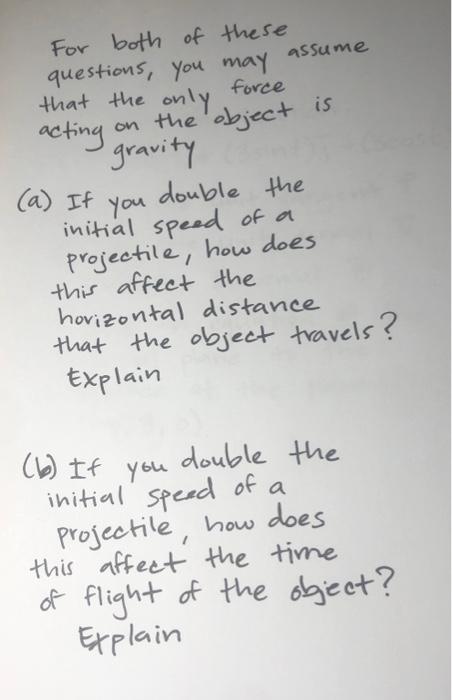 For both of these
questions, you may assume
that the only force
acting on the object is
gravity
(a) If you double the
initial speed of a
projectile, how does
this affect the
horizontal distance
that the object travels?
Explain
(b) If you double the
initial speed of a
projectile, how does
this affect the time
of flight of the object?
Explain